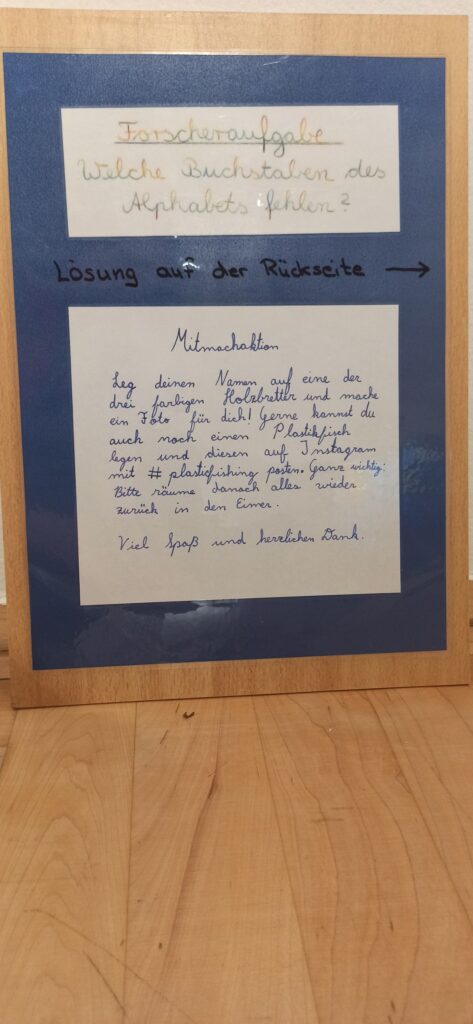 Forscheraufgabe
Welche Buchstaben des
Alphabets fehlen?
Lösung auf der Rückseite →
Mitmachaktion
Leg deinen Namen auf eine der
drei farbigen Holzbretter und mache
ein Foto für dich! Gerne kannst du
auch noch einen Plastikfisch
legen und diesen auf Instagram
mit # plasticfishing posten. Ganz wichtig:
Bitte räume danach alles wieder
zurück in den Eimer.
Viel Spaß und herzlichen Dank.